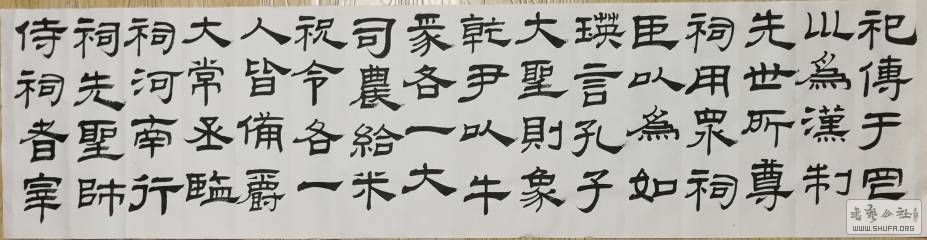 祀傳于罔
以為漢制
先世所尊
祠用眾祠
臣以為如
瑛言孔子
大聖則象
乾尹以牛
豕各一大
司農給米
祝令各一
人皆備爵
大常丞監
祠河南行
祠先聖師
侍祠者宰
書藝公社
WWW.SHUFA.ORG